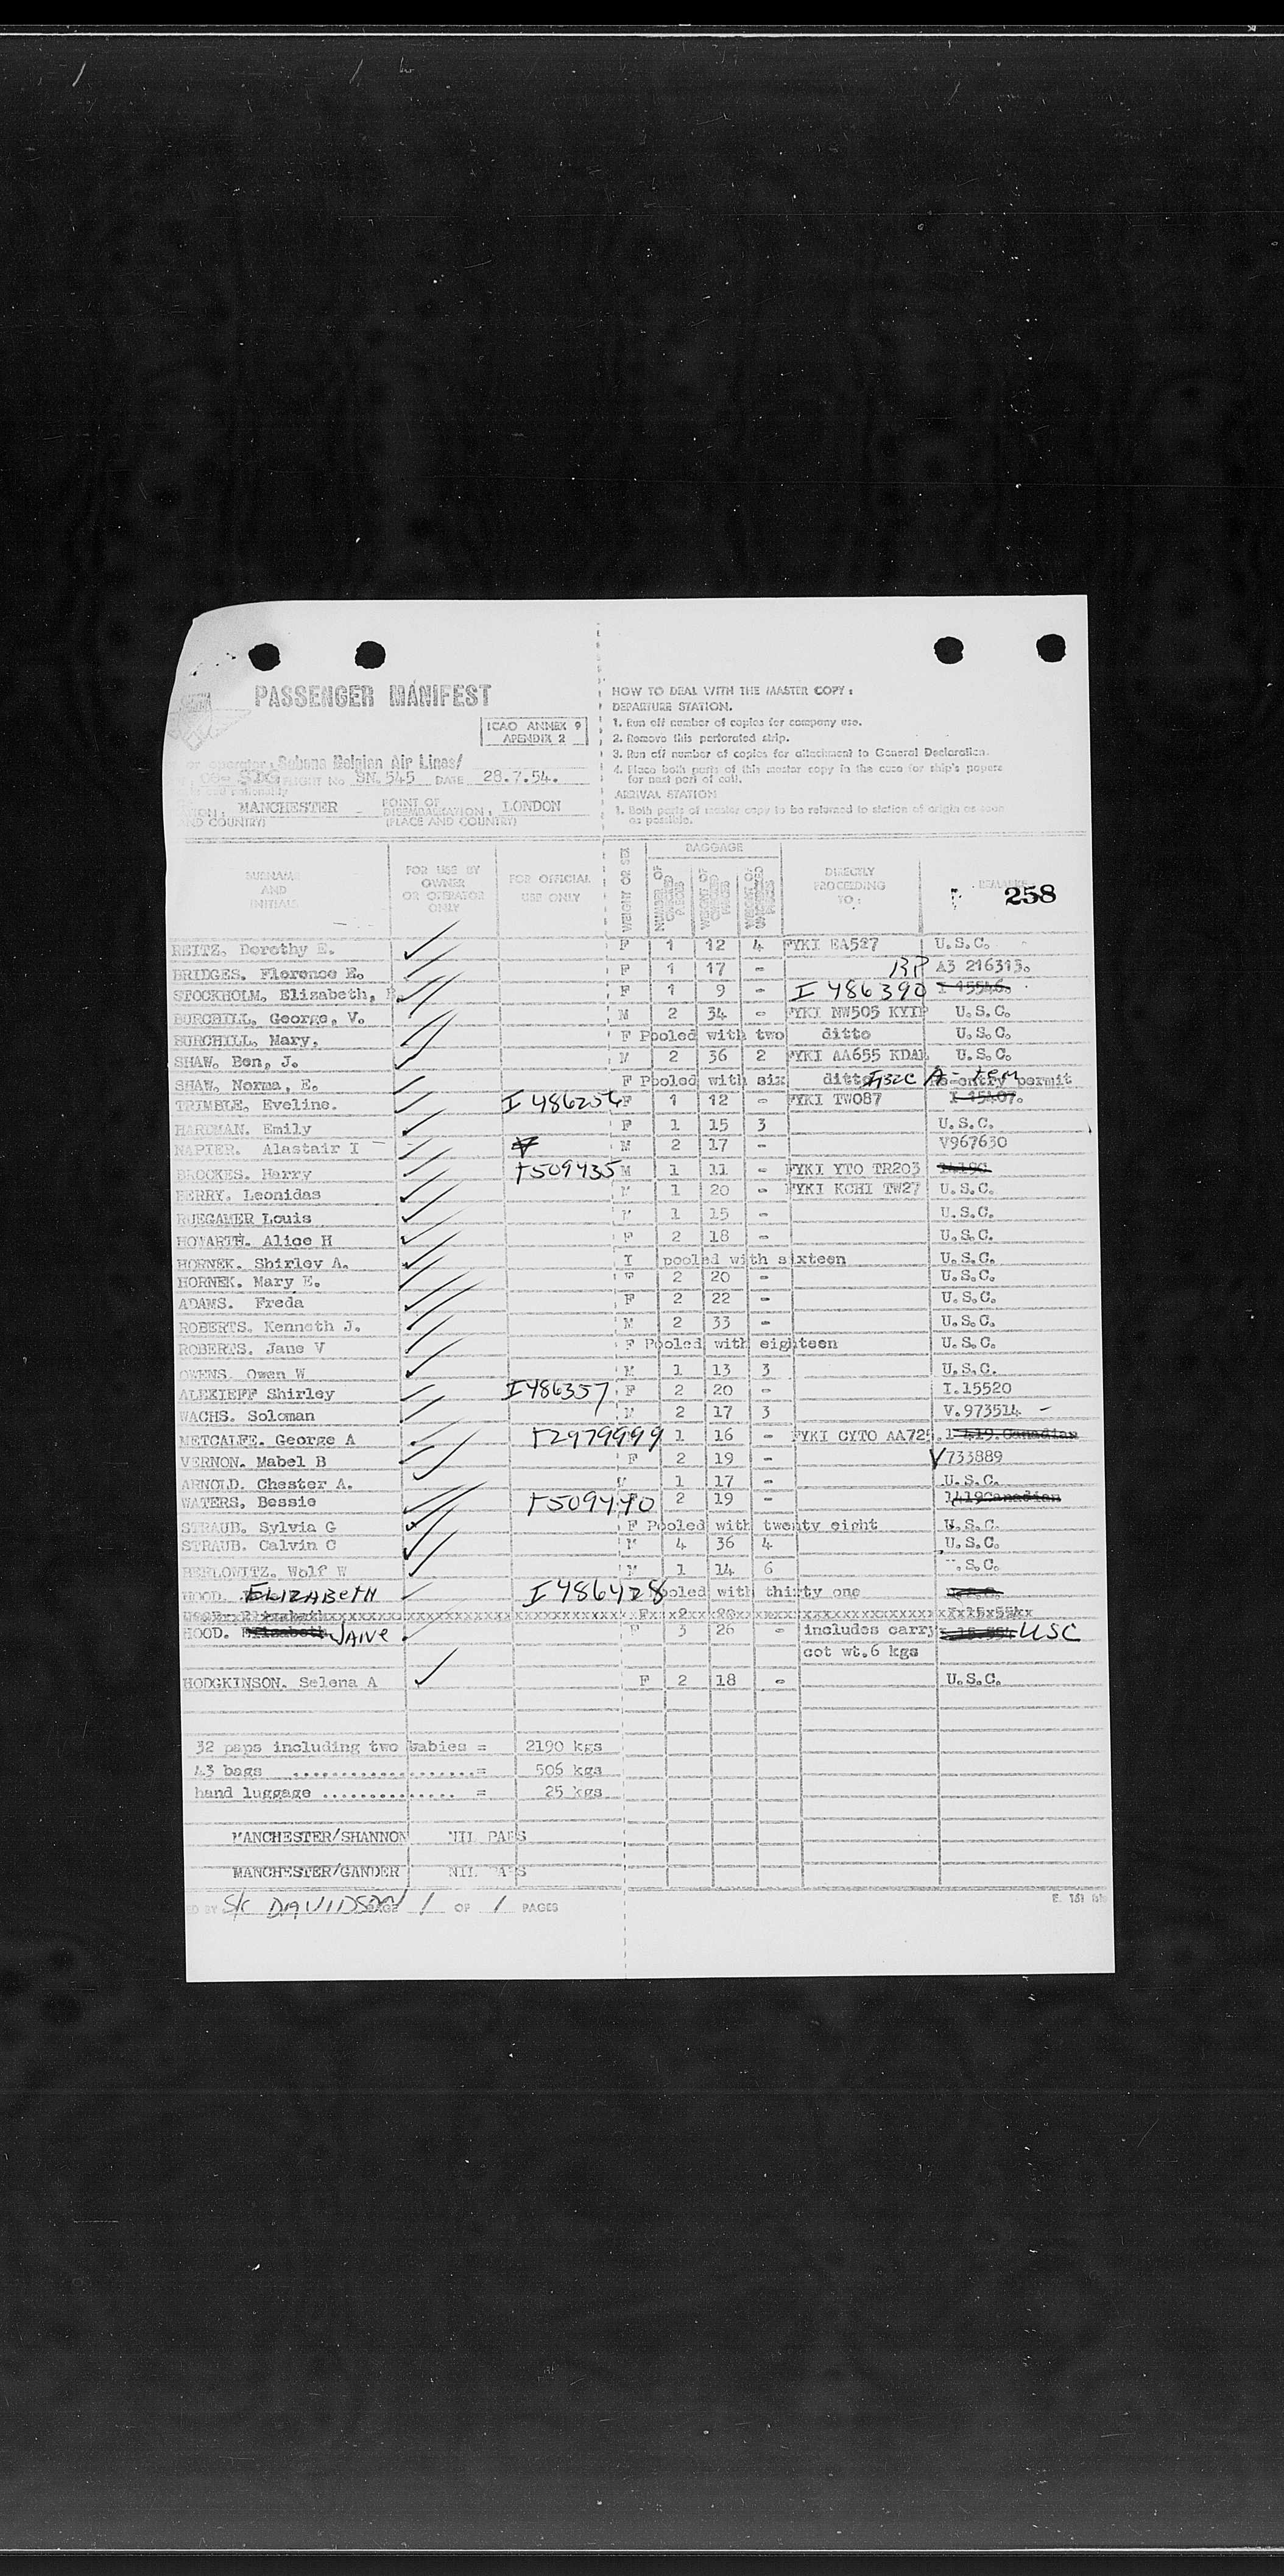 PASSENGER MANIFEST
ICAO ANNEX 9
APENDIX 2
or operator, Sabena Belgian Air Lines/
FLIGHT No SN.545 DATE 28.7.54.
MANCHESTER POINT OF DISEMBARKATION, LONDON
AND COUNTRY) (PLACE AND COUNTRY)
HOW TO DEAL WITH THE MASTER COPY :
DEPARTURE STATION.
1. Run off number of copies for company use.
2. Remove this perforated strip.
3. Run off number of copies for attachment to General Declaration.
4. Place both parts of this master copy in the case for ship's papers
for next port of call.
ARRIVAL STATION
1. Both parts of master copy to be returned to station of origin as soon
as possible.
SURNAME AND INITIALS
FOR USE BY OWNER OR OPERATOR ONLY
FOR OFFICIAL USE ONLY
WEIGHT OR SEX
BAGGAGE
NUMBER OF CHECKED PIECES
WEIGHT OF CHECKED PIECES
WEIGHT OF UNCHECKED PIECES
DIRECTLY PROCEEDING TO :
REMARKS
258
REITZ, Dorothy E. F 1 12 4 FYKI EA527 U.S.C.
BRIDGES. Florence E. F 1 17 - RP A3 216313.
STOCKHOLM, Elizabeth, F 1 9 - I 486390 I 15546.
BURCHILL, George, V. M 2 34 - FYKI NW505 KYIP U.S.C.
BURCHILL, Mary, F Pooled with two ditto U.S.C.
SHAW, Ben, J. M 2 36 2 FYKI AA655 KDAL U.S.C.
SHAW, Norma, E. F Pooled with six ditto Re-entry permit
TRIMBLE, Eveline. I 486256 F 1 12 - FYKI TW087 I 15407.
HARDMAN. Emily F 1 15 3 U.S.C.
NAPIER. Alastair I M 2 17 - V967630
BROOKES. Harry T509435 M 1 11 - FYKI YTO TR203
BERRY. Leonidas M 1 20 - FYKI KCHI TW27 U.S.C.
RUEGAMER Louis M 1 15 - U.S.C.
HOWARTH. Alice H F 2 18 - U.S.C.
HORNEK. Shirley A. I pooled with sixteen U.S.C.
HORNEK. Mary E. F 2 20 - U.S.C.
ADAMS. Freda F 2 22 - U.S.C.
ROBERTS. Kenneth J. M 2 33 - U.S.C.
ROBERTS. Jane V F Pooled with eighteen U.S.C.
OWENS. Owen W M 1 13 3 U.S.C.
ALEXIEFF Shirley I486357 F 2 20 - I.15520
WACHS. Soloman M 2 17 3 V.973514 -
METCALFE. George A T2979999 1 16 - FYKI CYTO AA725. 1 419.Canadian
VERNON. Mabel B F 2 19 - V733889
ARNOLD. Chester A. M 1 17 - U.S.C.
WATERS, Bessie T509440 2 19 - 1419Canadian
STRAUB. Sylvia G F Pooled with twenty eight U.S.C.
STRAUB. Calvin C M 4 36 4 U.S.C.
BERLOWITZ. Wolf W M 1 14 6 .S.C.
HOOD. ELIZABETH I486428 Pooled with thirty one U.S.C.
HOOD. Elizabeth JANE F 3 26 - includes carry USC
cot wt.6 kgs
HODGKINSON. Selena A F 2 18 - U.S.C.
32 paps including two babies = 2190 kgs
43 bags ....................= 506 kgs
hand luggage .............. = 25 kgs
MANCHESTER/SHANNON NIL PAPS
MANCHESTER/GANDER NIL PAPS
ED BY S/C DAVIDSON PAGE 1 OF 1 PAGES